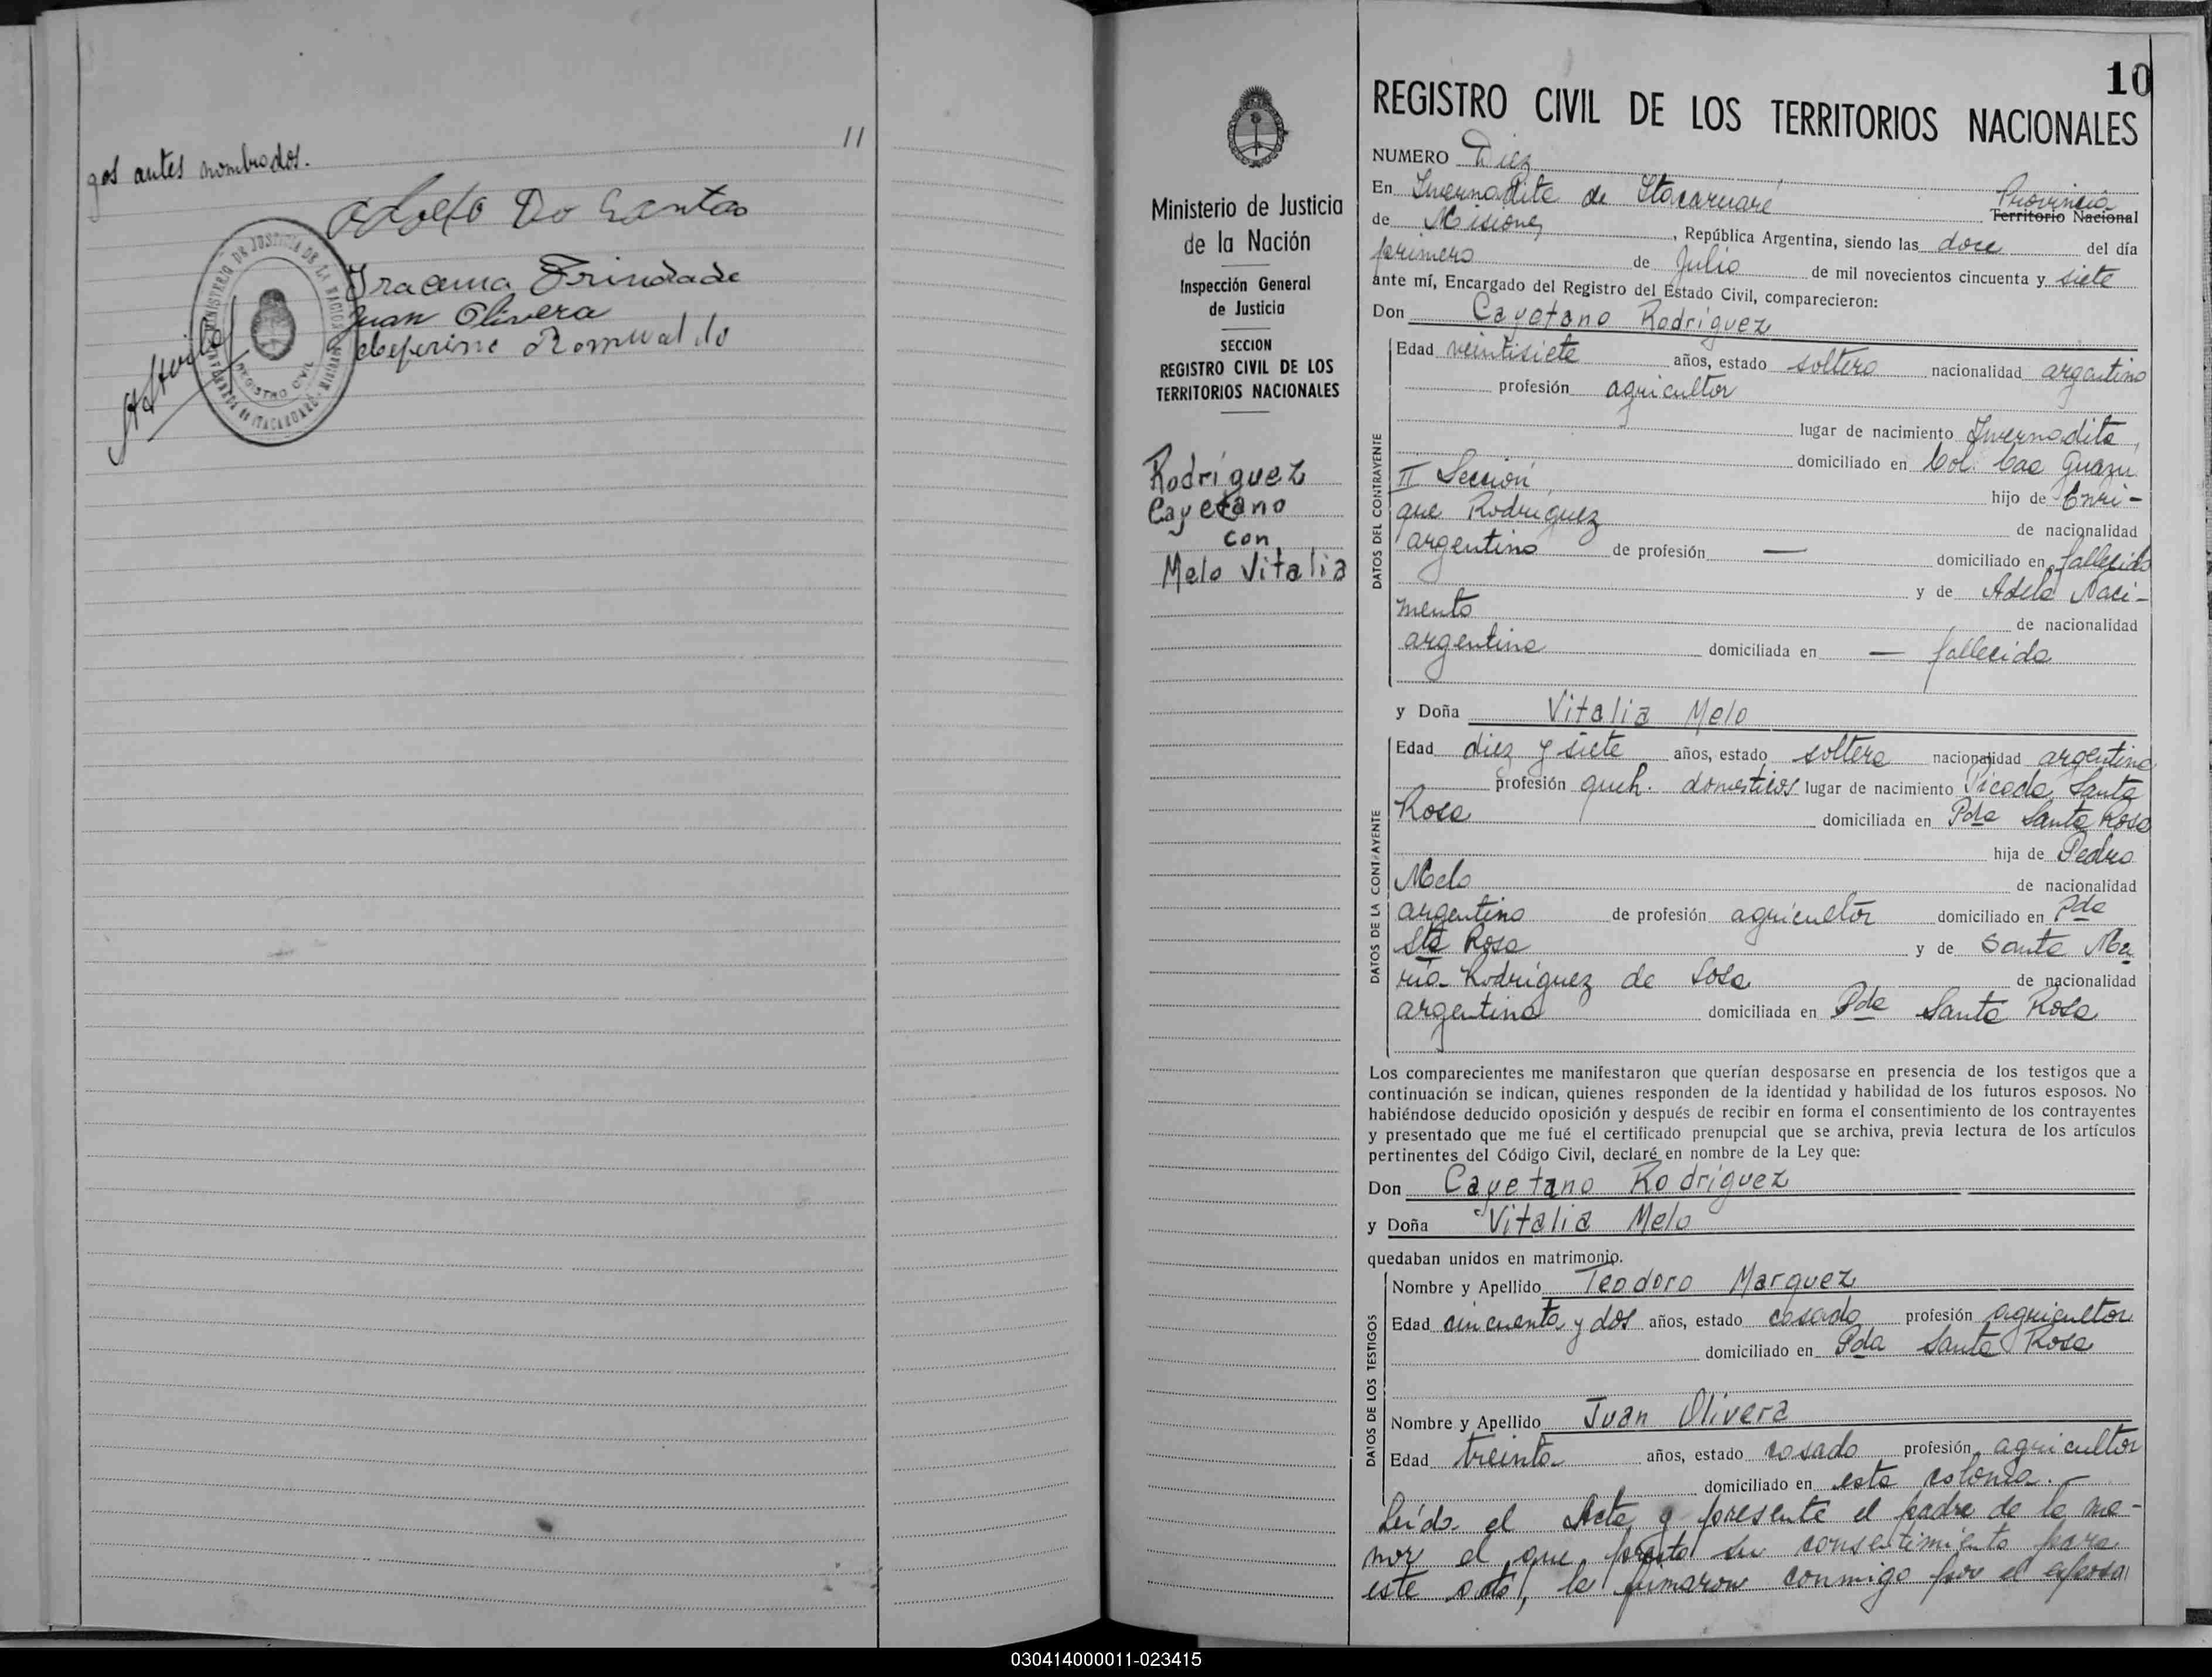 11
gos antes nombrados.
Adolfo Do Santos
Iracema Trindade
Juan Olivera
Ceferino Romualdo
MINISTERIO DE JUSTICIA DE LA NACION
REGISTRO CIVIL
Ministerio de Justicia
de la Nación
Inspección General
de Justicia
SECCION
REGISTRO CIVIL DE LOS
TERRITORIOS NACIONALES
Rodríguez
Cayetano
con
Melo Vitalia
10
REGISTRO CIVIL DE LOS TERRITORIOS NACIONALES
NUMERO Diez
En Invernadita de Itacaruaré Provincia
Territorio Nacional
de Misiones, República Argentina, siendo las doce del día
primero de Julio de mil novecientos cincuenta y siete
ante mí, Encargado del Registro del Estado Civil, comparecieron:
Don Cayetano Rodríguez
DATOS DEL CONTRAYENTE
Edad veintisiete años, estado soltero nacionalidad argentino
profesión agricultor
lugar de nacimiento Invernadita,
domiciliado en Col. Caa Guazu
II Sección hijo de Enri-
que Rodríguez de nacionalidad
argentino de profesión — domiciliado en fallecido
y de Adela Naci-
mento de nacionalidad
argentina domiciliada en — fallecida
y Doña Vitalia Melo
DATOS DE LA CONTRAYENTE
Edad diez y siete años, estado soltera nacionalidad argentina
profesión queh. domesticos lugar de nacimiento Picada Santa
Rosa domiciliada en Pda Santa Rosa
hija de Pedro
Melo de nacionalidad
argentino de profesión agricultor domiciliado en Pda
Sta Rosa y de Santa Ma
ría Rodríguez de Sosa de nacionalidad
argentina domiciliada en Pda Santa Rosa
Los comparecientes me manifestaron que querían desposarse en presencia de los testigos que a
continuación se indican, quienes responden de la identidad y habilidad de los futuros esposos. No
habiéndose deducido oposición y después de recibir en forma el consentimiento de los contrayentes
y presentado que me fué el certificado prenupcial que se archiva, previa lectura de los artículos
pertinentes del Código Civil, declaré en nombre de la Ley que:
Don Cayetano Rodríguez
y Doña Vitalia Melo
quedaban unidos en matrimonio.
DATOS DE LOS TESTIGOS
Nombre y Apellido Teodoro Marquez
Edad cincuenta y dos años, estado casado profesión agricultor
domiciliado en Pda Santa Rosa
Nombre y Apellido Juan Olivera
Edad treinta años, estado casado profesión agricultor
domiciliado en esta colonia.—
Leída el Acta y presente el padre de la me-
nor el que presta su consentimiento para
este acto, la firmaron conmigo por el esposo
030414000011-023415